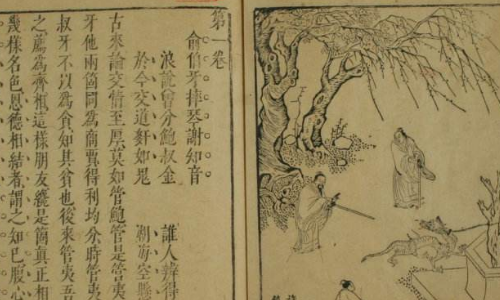 第一卷
俞伯牙摔琴謝知音
浪說曾分鮑叔金 誰人辨得
於今交道奸如鬼 湖海空懸
古來論交情至厚莫如管鮑管是管夷
牙他兩箇同為商賈得利均分時管夷
叔牙不以為貪知其貧也後來管夷吾
之薦為齊相這樣朋友纔是箇真正相
幾樣名色恩德相結者謂之知己腹心